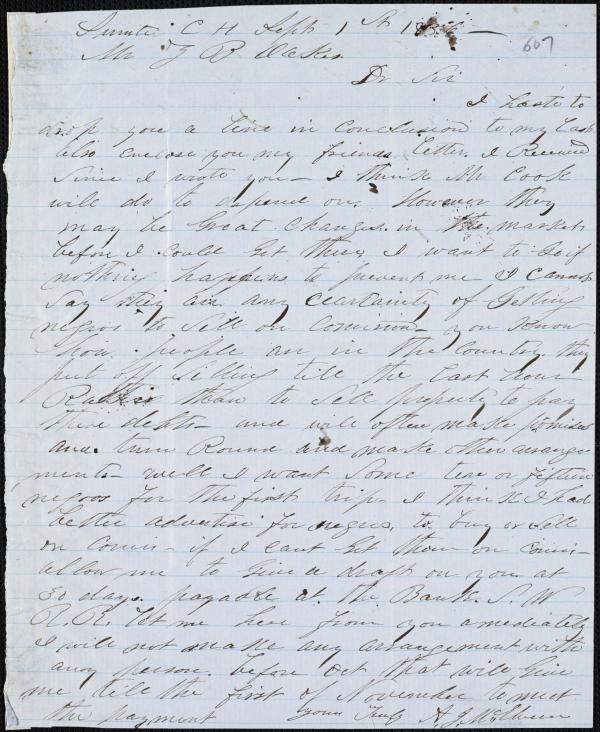 Sumter C H Sept 1 St 18
607
Mr Z B Oakes
Dr Sir
I haste to
drop you a line in Conclusion to my Last
also enclose you my friends Letter. I Received
Since I wrote you - I think Mr Cook
will do to depend on. However they
may be Great Changes in the market
before I could Get there, I want to Go if
nothing happens to prevent me I Cannot
Say they are any Ceartainity of Getting
negros to Sell on Comision - you Know
How people are in the Country they
put off Selling till the Last hour
Rather than to Sell property to pay
there debts - and will often make promises
and turn Round and make other arrange
ments - well I want Some ten or fifteen
negros for the first trip. I think I had
better advertise for negros, to buy or Sell
on Comis - if I cant Get them on Comis -
allow me to Give a draft on you at
30 days. payable at the Bank. S. W
R. R. Let me hear from you amediately
I will not make any arrangement with
any person. before Oct that will Give
me till the first of November to meet
the payment yours Truly A. J. McElveen